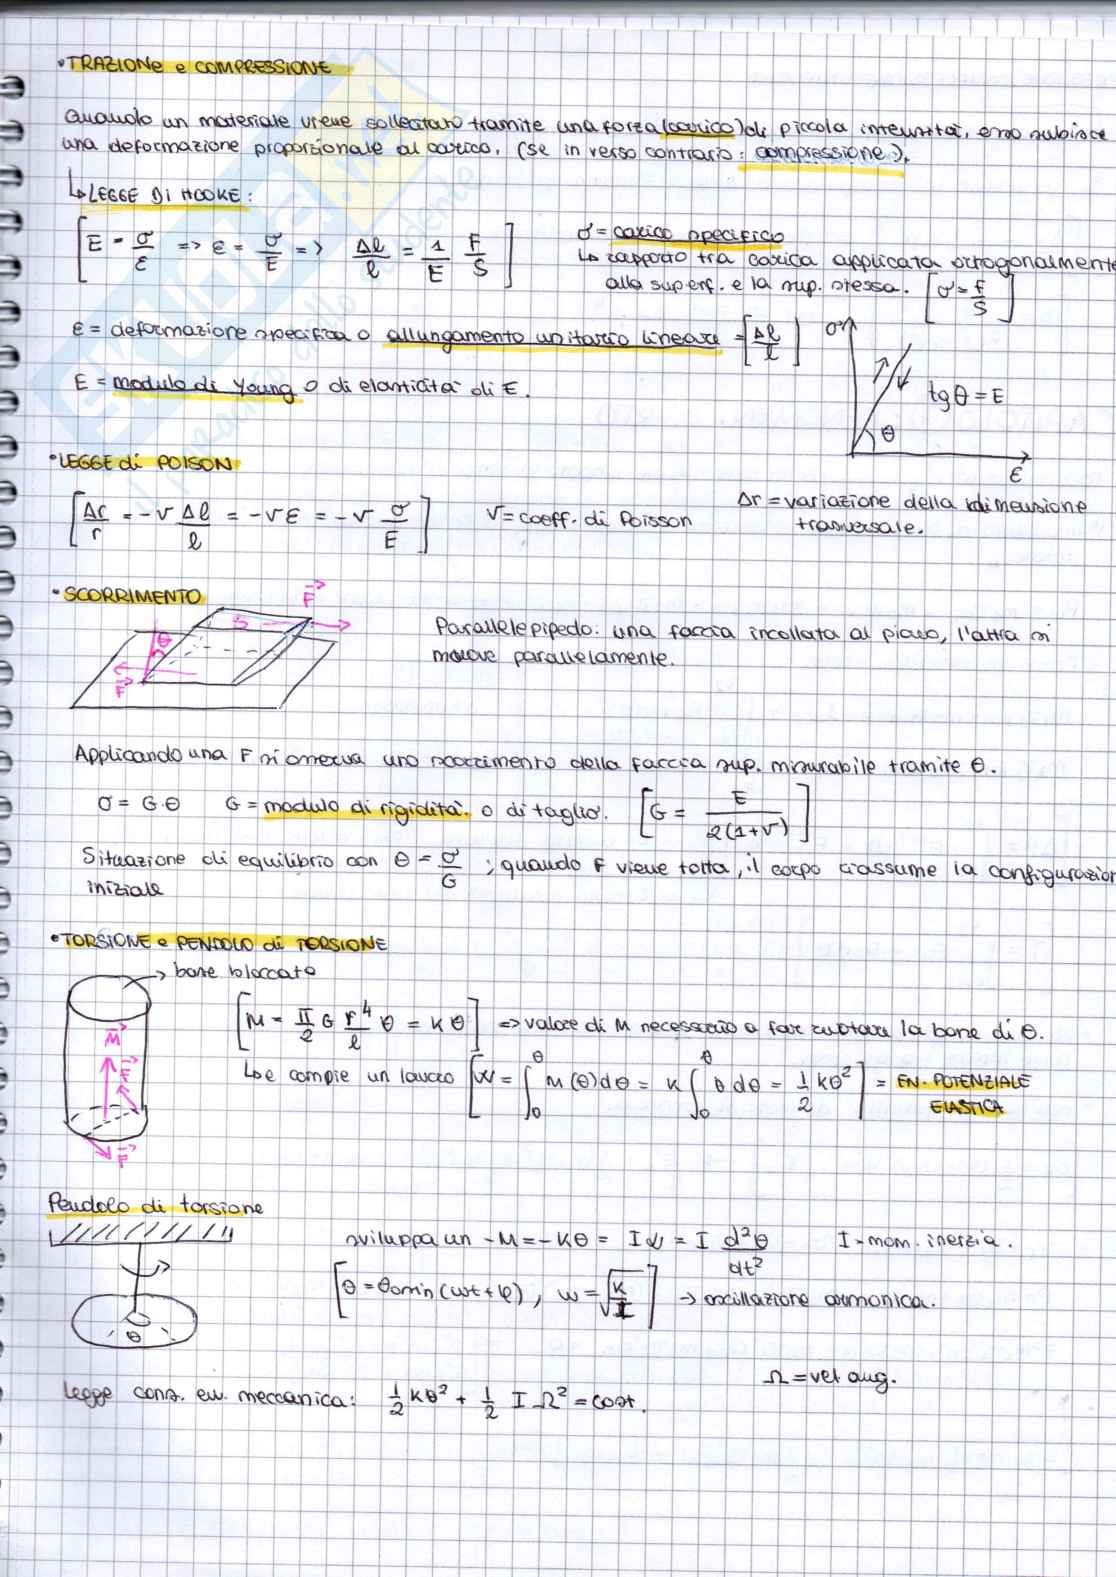 • TRAZIONE e COMPRESSIONE
Quando un materiale viene sollecitato tramite una forza (carico) di piccola intensità, esso subisce
una deformazione proporzionale al carico. (se in verso contrario: compressione).
↳ LEGGE DI HOOKE:
[E = σ/ε => ε = σ/E => Δl/l = 1/E F/S]
σ = carico specifico
↳ rapporto tra carica applicata ortogonalmente
alla superf. e la sup. stessa. [σ = F/S]
ε = deformazione specifica o allungamento unitario lineare = [Δl/l]
E = modulo di Young o di elasticità di E.
σ
tgθ = E
θ
ε
• LEGGE di POISON
[Δr/r = -ν Δl/l = -νε = -ν σ/E]
ν = coeff. di Poisson
Δr = variazione della dimensione
trasversale.
• SCORRIMENTO
F
S
θ
F
Parallelepipedo: una faccia incollata al piano, l'altra si
muove parallelamente.
Applicando una F si osserva uno scorrimento della faccia sup. misurabile tramite θ.
σ = G·θ G = modulo di rigidità o di taglio. [G = E/2(1+ν)]
Situazione di equilibrio con θ = σ/G ; quando F viene tolta, il corpo riassume la configurazion
iniziale
• TORSIONE e PENDOLO di TORSIONE
→ base bloccata
M
F
F
[M = π/2 G r⁴/l θ = Kθ] => valore di M necessario a far ruotare la base di θ.
↳ e compie un lavoro [W = ∫₀^θ M(θ)dθ = K∫₀^θ θ dθ = 1/2 Kθ²] = EN. POTENZIALE
ELASTICA
Pendolo di torsione
θ
sviluppa un -M = -Kθ = Iα = I d²θ/dt² I = mom. inerzia.
[θ = θ₀ sin(ωt+φ), ω = √K/I] → oscillazione armonica.
Ω = vel. ang.
Legge cons. en. meccanica: 1/2 Kθ² + 1/2 I Ω² = cost.
SKUOLA.net
il paradiso dello studente